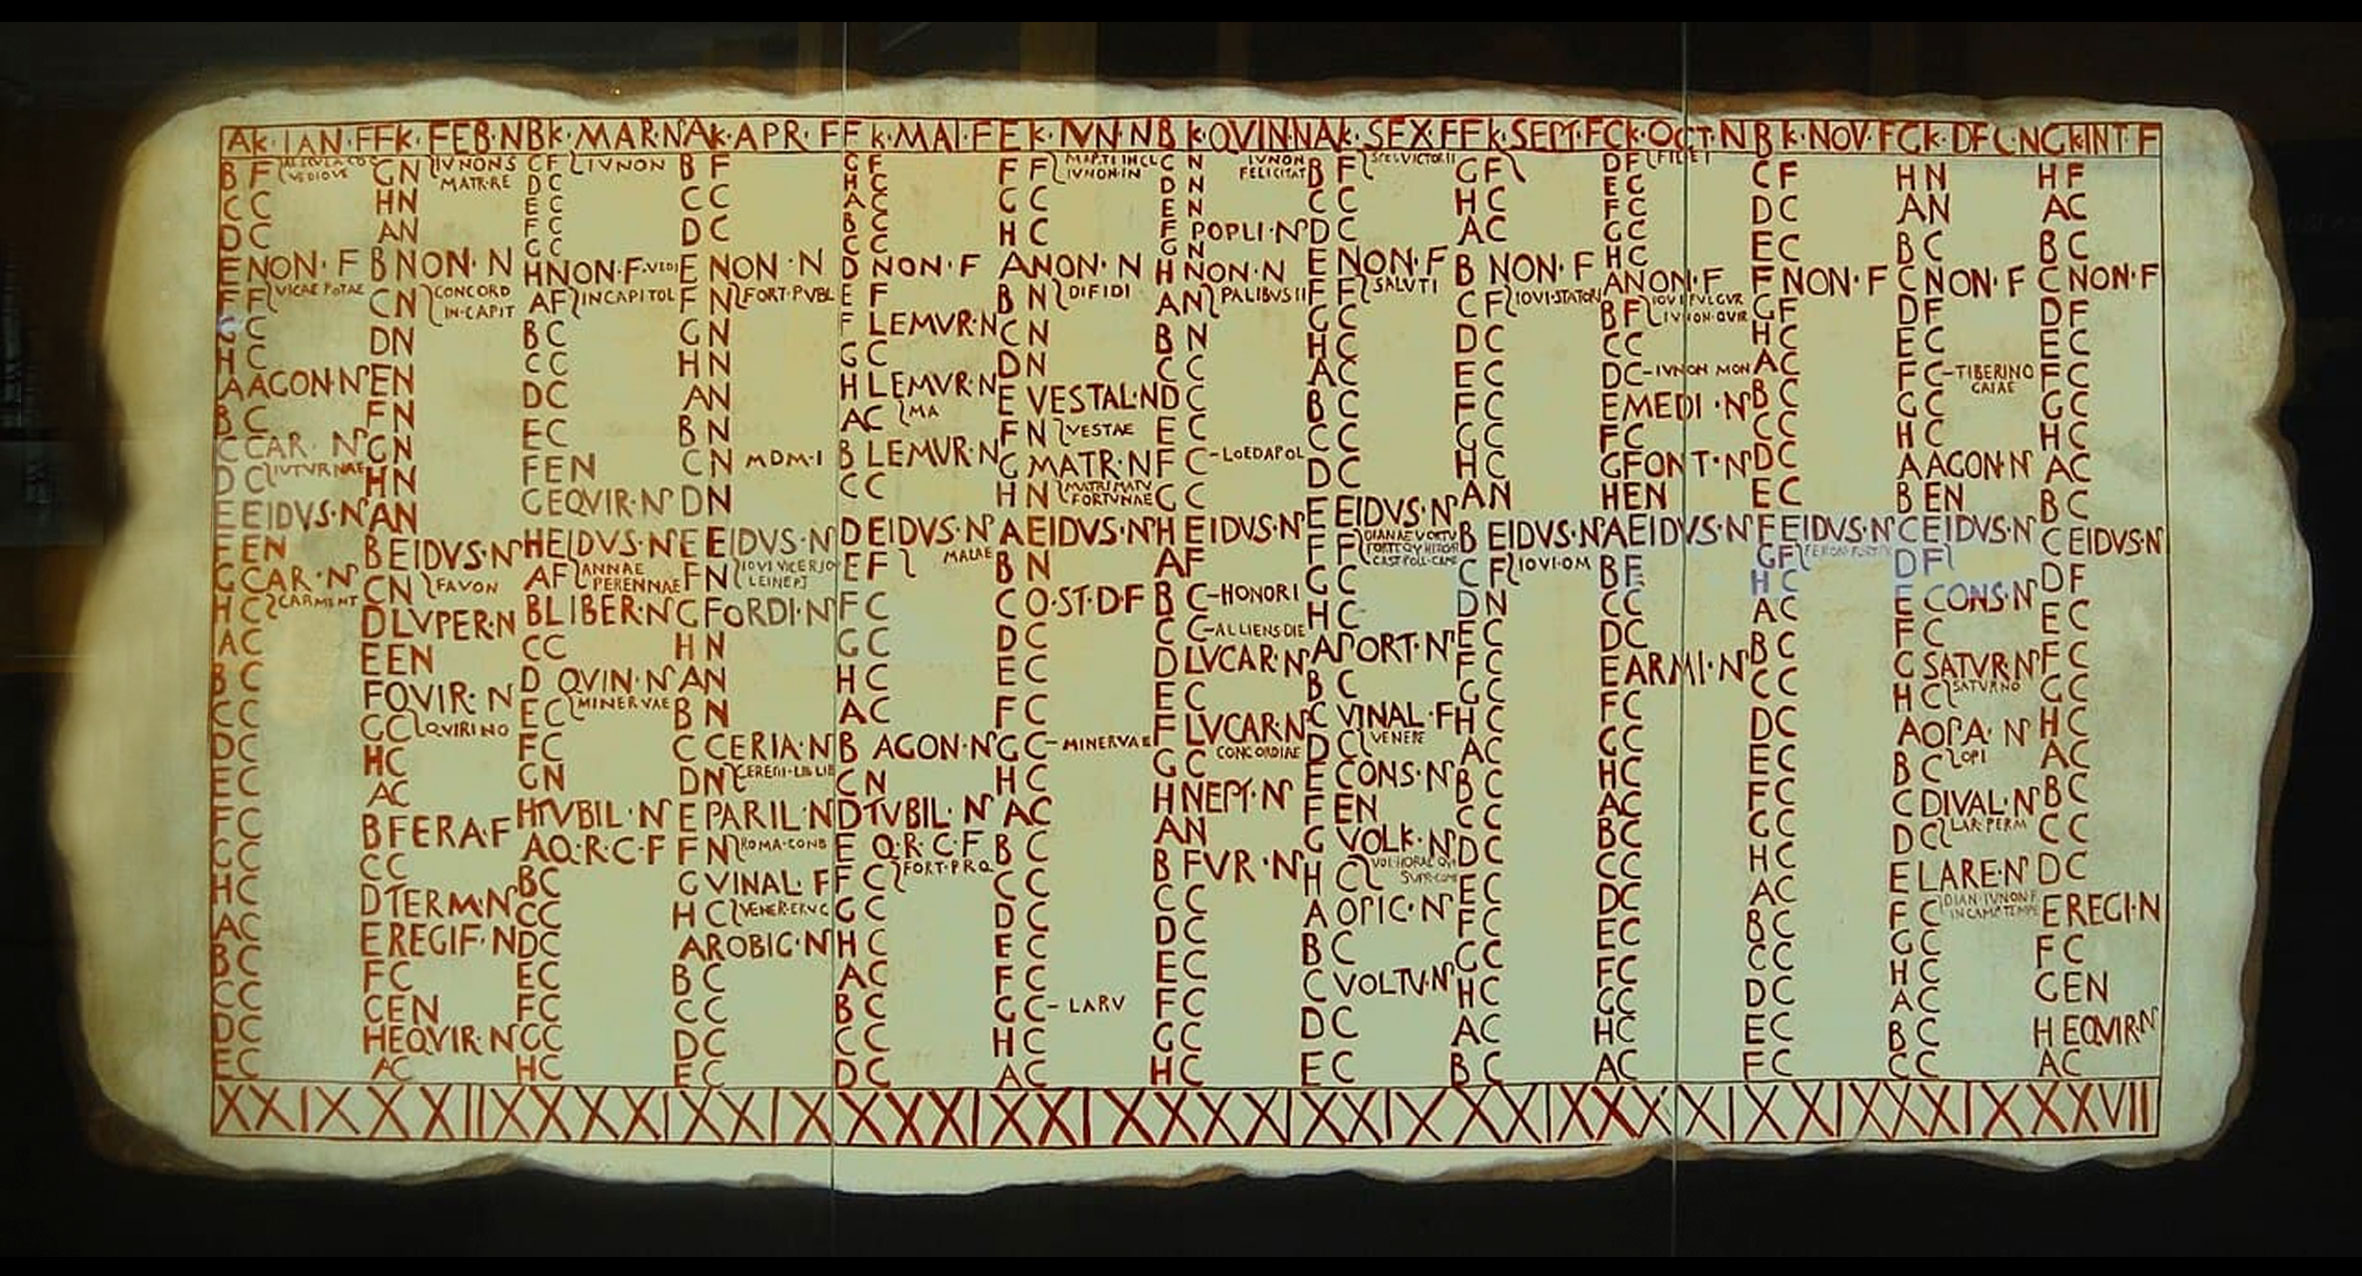 Ak·IAN·F Fk·FEB·N Bk·MAR·N Ak·APR·F Fk·MAI·F Ek·IVN·N Bk·QVIN·N Ak·SEX·F Fk·SEPT·F Ck·OCT·N Bk·NOV·F Gk·DEC·N Gk·INT·F
B F
VEDIOVE
C C
D C
E NON·F
F F VICAE POTAE
G C
H C
A AGON·N
B C
C CAR·N
D C IVTVRNAE
E EIDVS·N
F EN
G CAR·N
H C CARMENT
A C
B C
C C
D C
E C
F C
G C
H C
A C
B C
C C
D C
E C
G N IVNONS
MATR·RE
H N
A N
B NON·N
C N CONCORD
IN·CAPIT
D N
E N
F N
G N
H N
A N
B EIDVS·N
C N FAVON
D LVPER·N
E EN
F QVIR·N
G C QVIRINO
H C
A C
B FERA·F
C C
D TERM·N
E REGIF·N
F C
G EN
H EQVIR·N
A C
C F IVNON
D C
E C
F C
G C
H NON·F VEDI
A F INCAPITOL
B C
C C
D C
E C
F EN
G EQVIR·N
H EIDVS·N
A F ANNAE
PERENNAE
B LIBER·N
C C
D QVIN·N
E C MINERVAE
F C
G N
H TVBIL·N
A Q·R·C·F
B C
C C
D C
E C
F C
G C
H C
B F
C C
D C
E NON·N
F N FORT·PVBL
G N
H N
A N
B N
C N MDM·I
D N
E EIDVS·N
F N IOVI VICE
LEINEPT
G FORDI·N
H N
A N
B N
C CERIA·N
D N
E PARIL·N
F N ROMA·COND
G VINAL·F
H C VENER·ERVC
A ROBIG·N
B C
C C
D C
E C
G F
H C
A C
B C
C C
D NON·F
E F
F LEMVR·N
G C
H LEMVR·N
A C MA
B LEMVR·N
C C
D EIDVS·N
E F MAIAE
F C
G C
H C
A C
B AGON·N
C N
D TVBIL·N
E Q·R·C·F
F C FORT·PRQ
G C
H C
A C
B C
C C
D C
F F MARTI INCL
IVNON·IN
G C
H C
A NON·N
B N DIFIDI
C N
D N
E VESTAL·N
F N VESTAE
G MATR·N
H N MATRIMATV
FORTVNAE
A EIDVS·N
B N
C Q·ST·D·F
D C
E C
F C
G C-MINERVAE
H C
A C
B C
C C
D C
E C
F C
G C-LARV
H C
A C
C N IVNON
FELICITAT
D N
E N
F POPLI·N
G N
H NON·N
A N PALIBVSII
B N
C C
D C
E C
F C-LOEDAPOL
G C
H EIDVS·N
A F
B C-HONORI
C C-ALLIENSDIE
D LVCAR·N
E C
F LVCAR·N
G C CONCORDIAE
H NEPT·N
A N
B FVR·N
C C
D C
E C
F C
G C
H C
B F
C C
D C
E NON·F
F F SALVTI
G C
H C
A C
B C
C C
D C
E EIDVS·N
F F DIANAE VORTV
G C
H C
A PORT·N
B C
C VINAL·F
D C VENERE
E CONS·N
F EN
G VOLK·N
H C
A OPIC·N
B C
C VOLTV·N
D C
E C
G F
H C
A C
B NON·F
C F IOVI·STATORI
D C
E C
F C
G C
H C
A N
B EIDVS·N
C F IOVI·OM
D N
E C
F C
G C
H C
A C
B C
C C
D C
E C
F C
G C
H C
A C
B C
D F FIDEI
E C
F C
G C
H C
A NON·F
B F IOVI FVLGVR
IVNON·QVIR
C C
D C-IVNON MON
E MEDI·N
F C
G FONT·N
H EN
A EIDVS·N
B F
C C
D C
E ARMI·N
F C
G C
H C
A C
B C
C C
D C
E C
F C
G C
H C
A C
C F
D C
E C
F NON·F
G F
H C
A C
B C
C C
D C
E C
F EIDVS·N
G F
H C
A C
B C
C C
D C
E C
F C
G C
H C
A C
B C
C C
D C
E C
F C
H N
A N
B C
C NON·F
D F
E C
F C-TIBERINO
GAIAE
G C
H C
A AGON·N
B EN
C EIDVS·N
D F
E CONS·N
F C
G SATVR·N
H C SATVRNO
A OPA·N
B C OPI
C DIVAL·N
D C LAR·PERM
E LARE·N
F C DIAN·IVNON·F
IN CAMP TEMPE
G C
H C
A C
B C
C C
H F
A C
B C
C NON·F
D F
E C
F C
G C
H C
A C
B C
C EIDVS·N
D F
E C
F C
G C
H C
A C
B C
C C
D C
E REGI·N
F C
G EN
H EQVIR·N
A C
XXIX XXVIII XXXXI XXIX XXXI XXIX XXXI XXIX XXIX XXXI XXIX XXIX XXVII